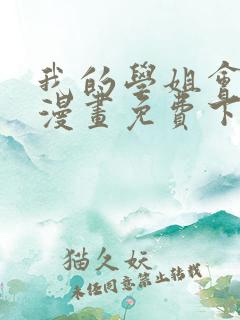 我的學姐會
漫畫免費下
猫久妖
未经同意禁止转载